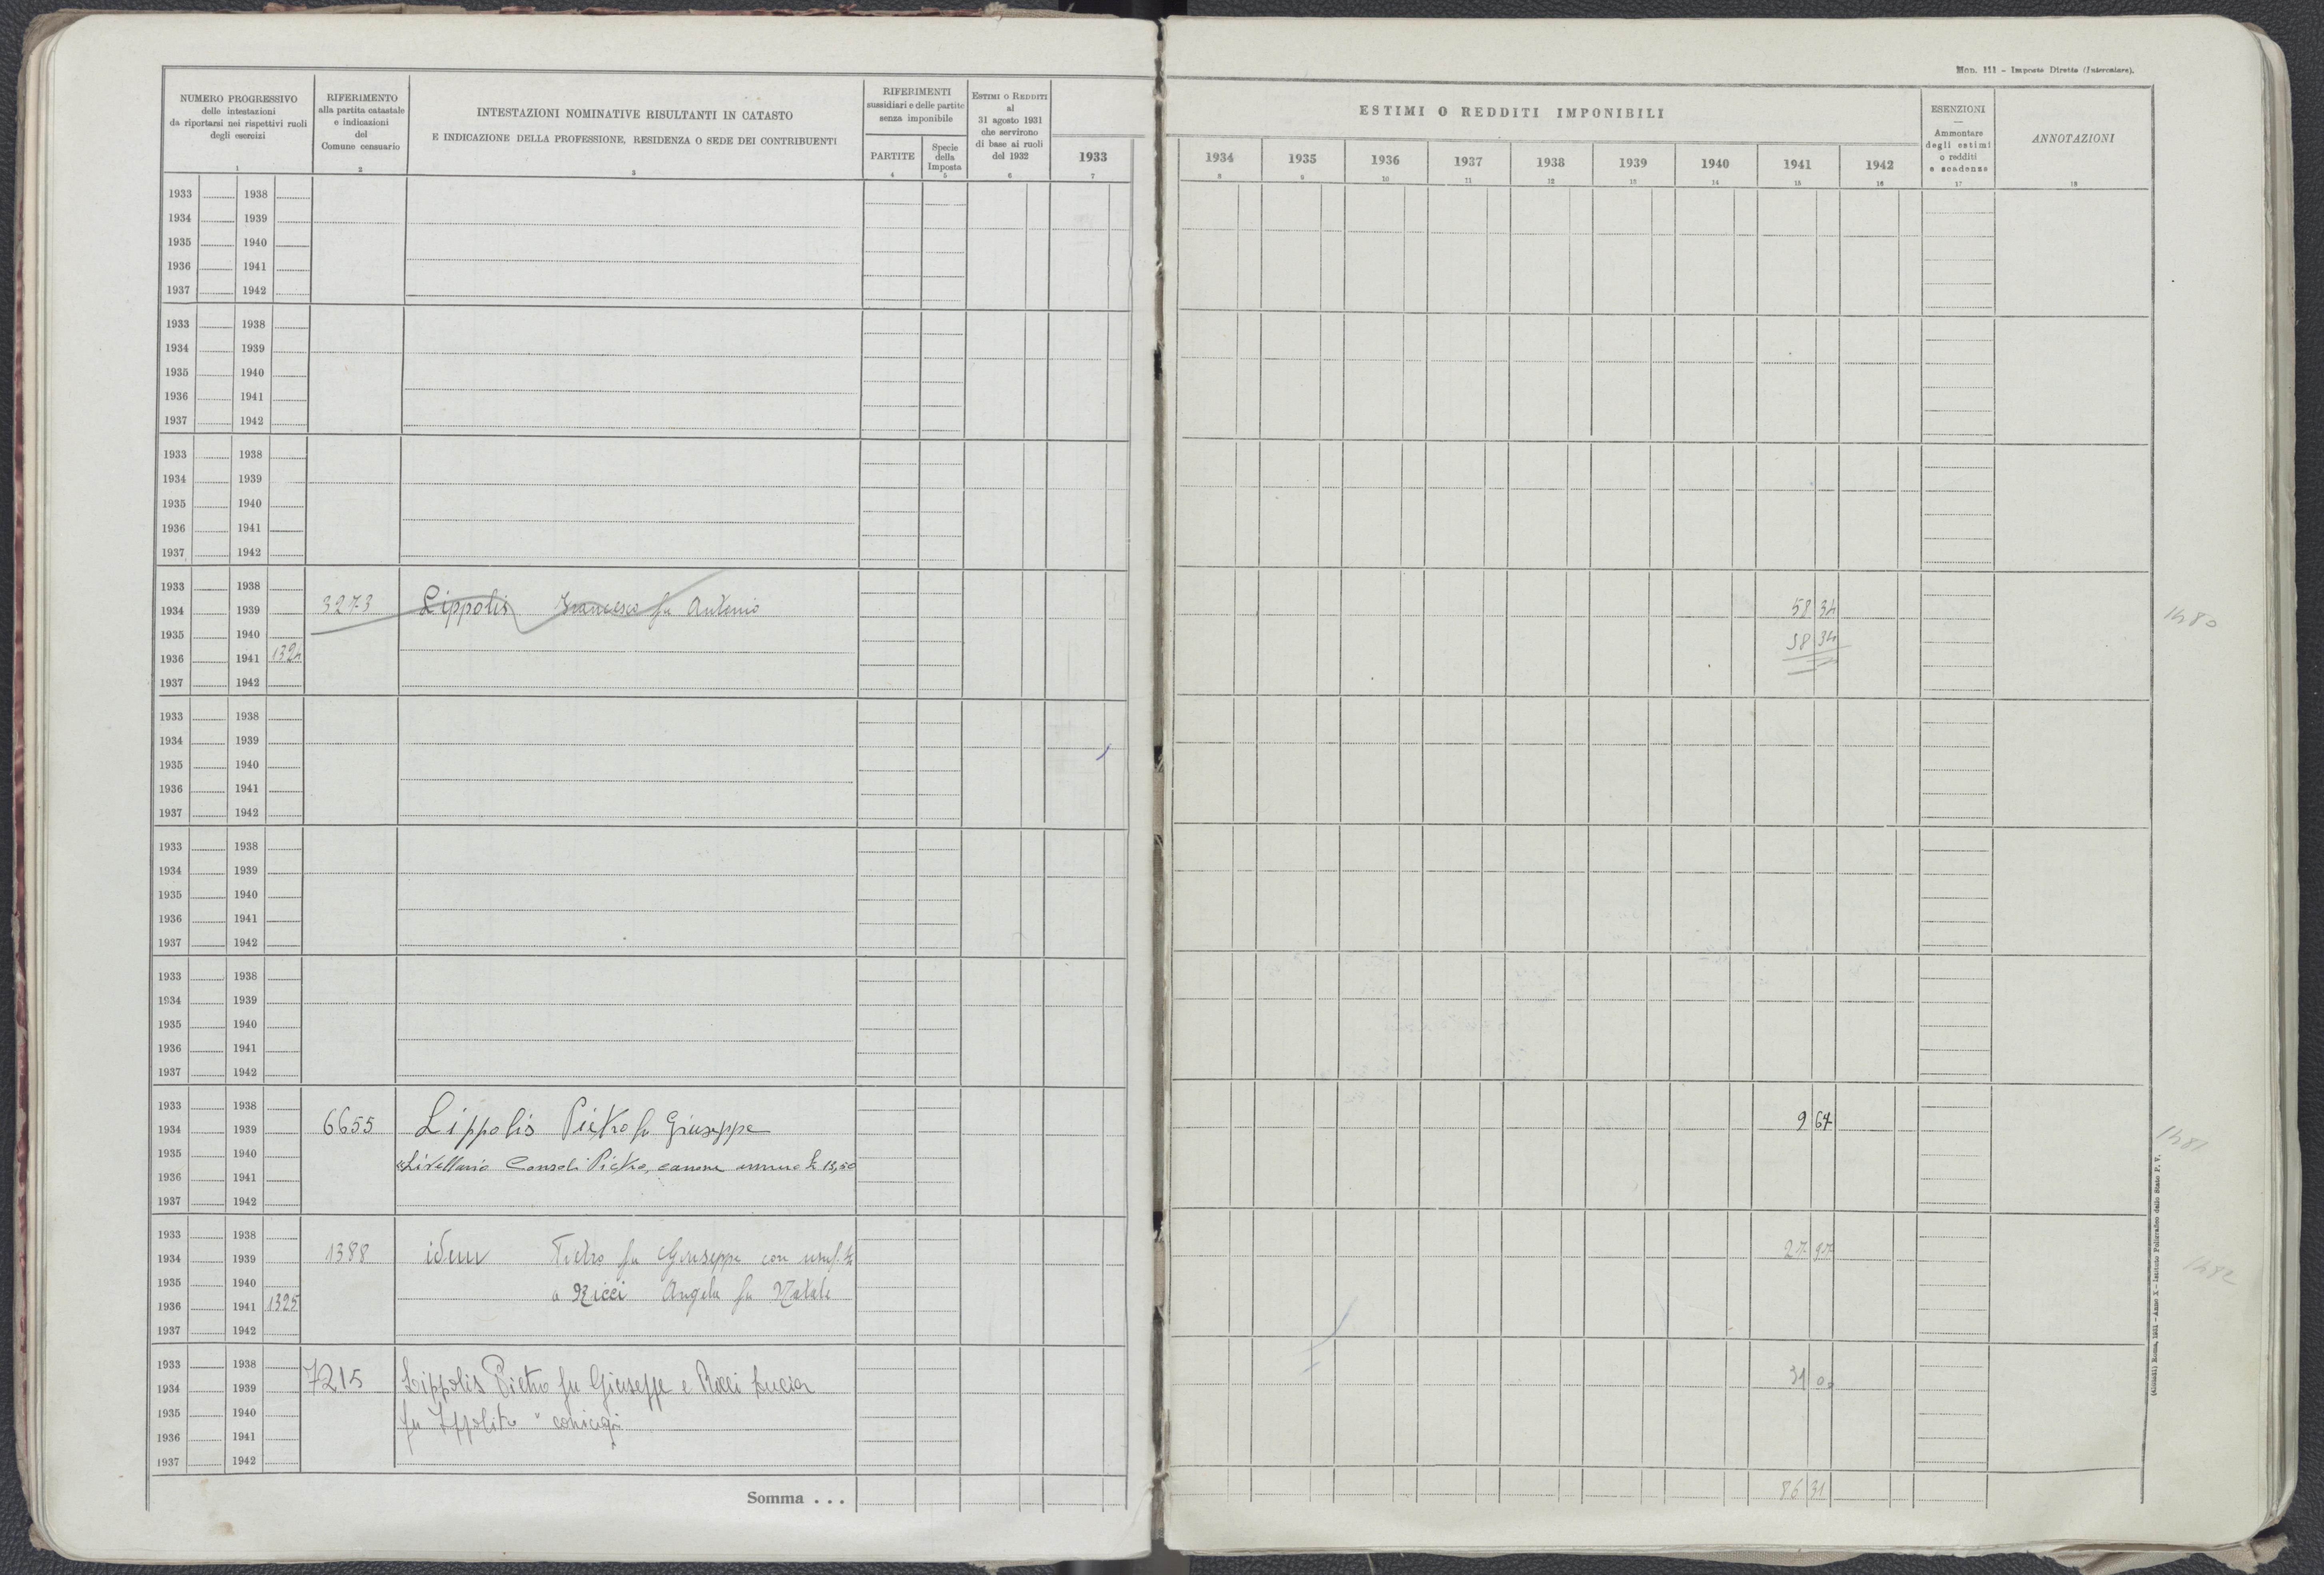 Mon. 111 - Imposte Dirette (Intercalare).
NUMERO PROGRESSIVO
delle intestazioni
da riportarsi nei rispettivi ruoli
degli esercizi
1
RIFERIMENTO
alla partita catastale
e indicazioni
del
Comune censuario
2
INTESTAZIONI NOMINATIVE RISULTANTI IN CATASTO
E INDICAZIONE DELLA PROFESSIONE, RESIDENZA O SEDE DEI CONTRIBUENTI
3
RIFERIMENTI
sussidiari e delle partite
senza imponibile
PARTITE
4
Specie
della
Imposta
5
ESTIMI O REDDITI
al
31 agosto 1931
che servirono
di base ai ruoli
del 1932
6
ESTIMI O REDDITI IMPONIBILI
1933 1934 1935 1936 1937 1938 1939 1940 1941 1942
7 8 9 10 11 12 13 14 15 16
ESENZIONI
—
Ammontare
degli estimi
o redditi
e scadenze
17
ANNOTAZIONI
18
1933 1938
1934 1939
1935 1940
1936 1941
1937 1942
1933 1938
1934 1939
1935 1940
1936 1941
1937 1942
1933 1938
1934 1939
1935 1940
1936 1941
1937 1942
1933 1938
1934 1939 3273 Lippolis Francesco fu Antonio 58 34 1480
1935 1940 58 34
1936 1941 1324
1937 1942
1933 1938
1934 1939
1935 1940
1936 1941
1937 1942
1933 1938
1934 1939
1935 1940
1936 1941
1937 1942
1933 1938
1934 1939
1935 1940
1936 1941
1937 1942
1933 1938
1934 1939 6655 Lippolis Pietro fu Giuseppe 9 67 1481
1935 1940 Livellario Consoli Pietro, canone annuo £ 13,50
1936 1941
1937 1942
1933 1938
1934 1939 1388 idem Pietro fu Giuseppe con usuf. 27 97 1482
1935 1940 a Ricci Angela fu Natale
1936 1941 1325
1937 1942
1933 1938
1934 1939 7215 Lippolis Pietro fu Giuseppe e Ricci Lucia 31 00
1935 1940 fu Ippolito coniugi
1936 1941
1937 1942
Somma . . . 86 31
Roma, 1931 - Anno X - Istituto Poligrafico dello Stato P. V.